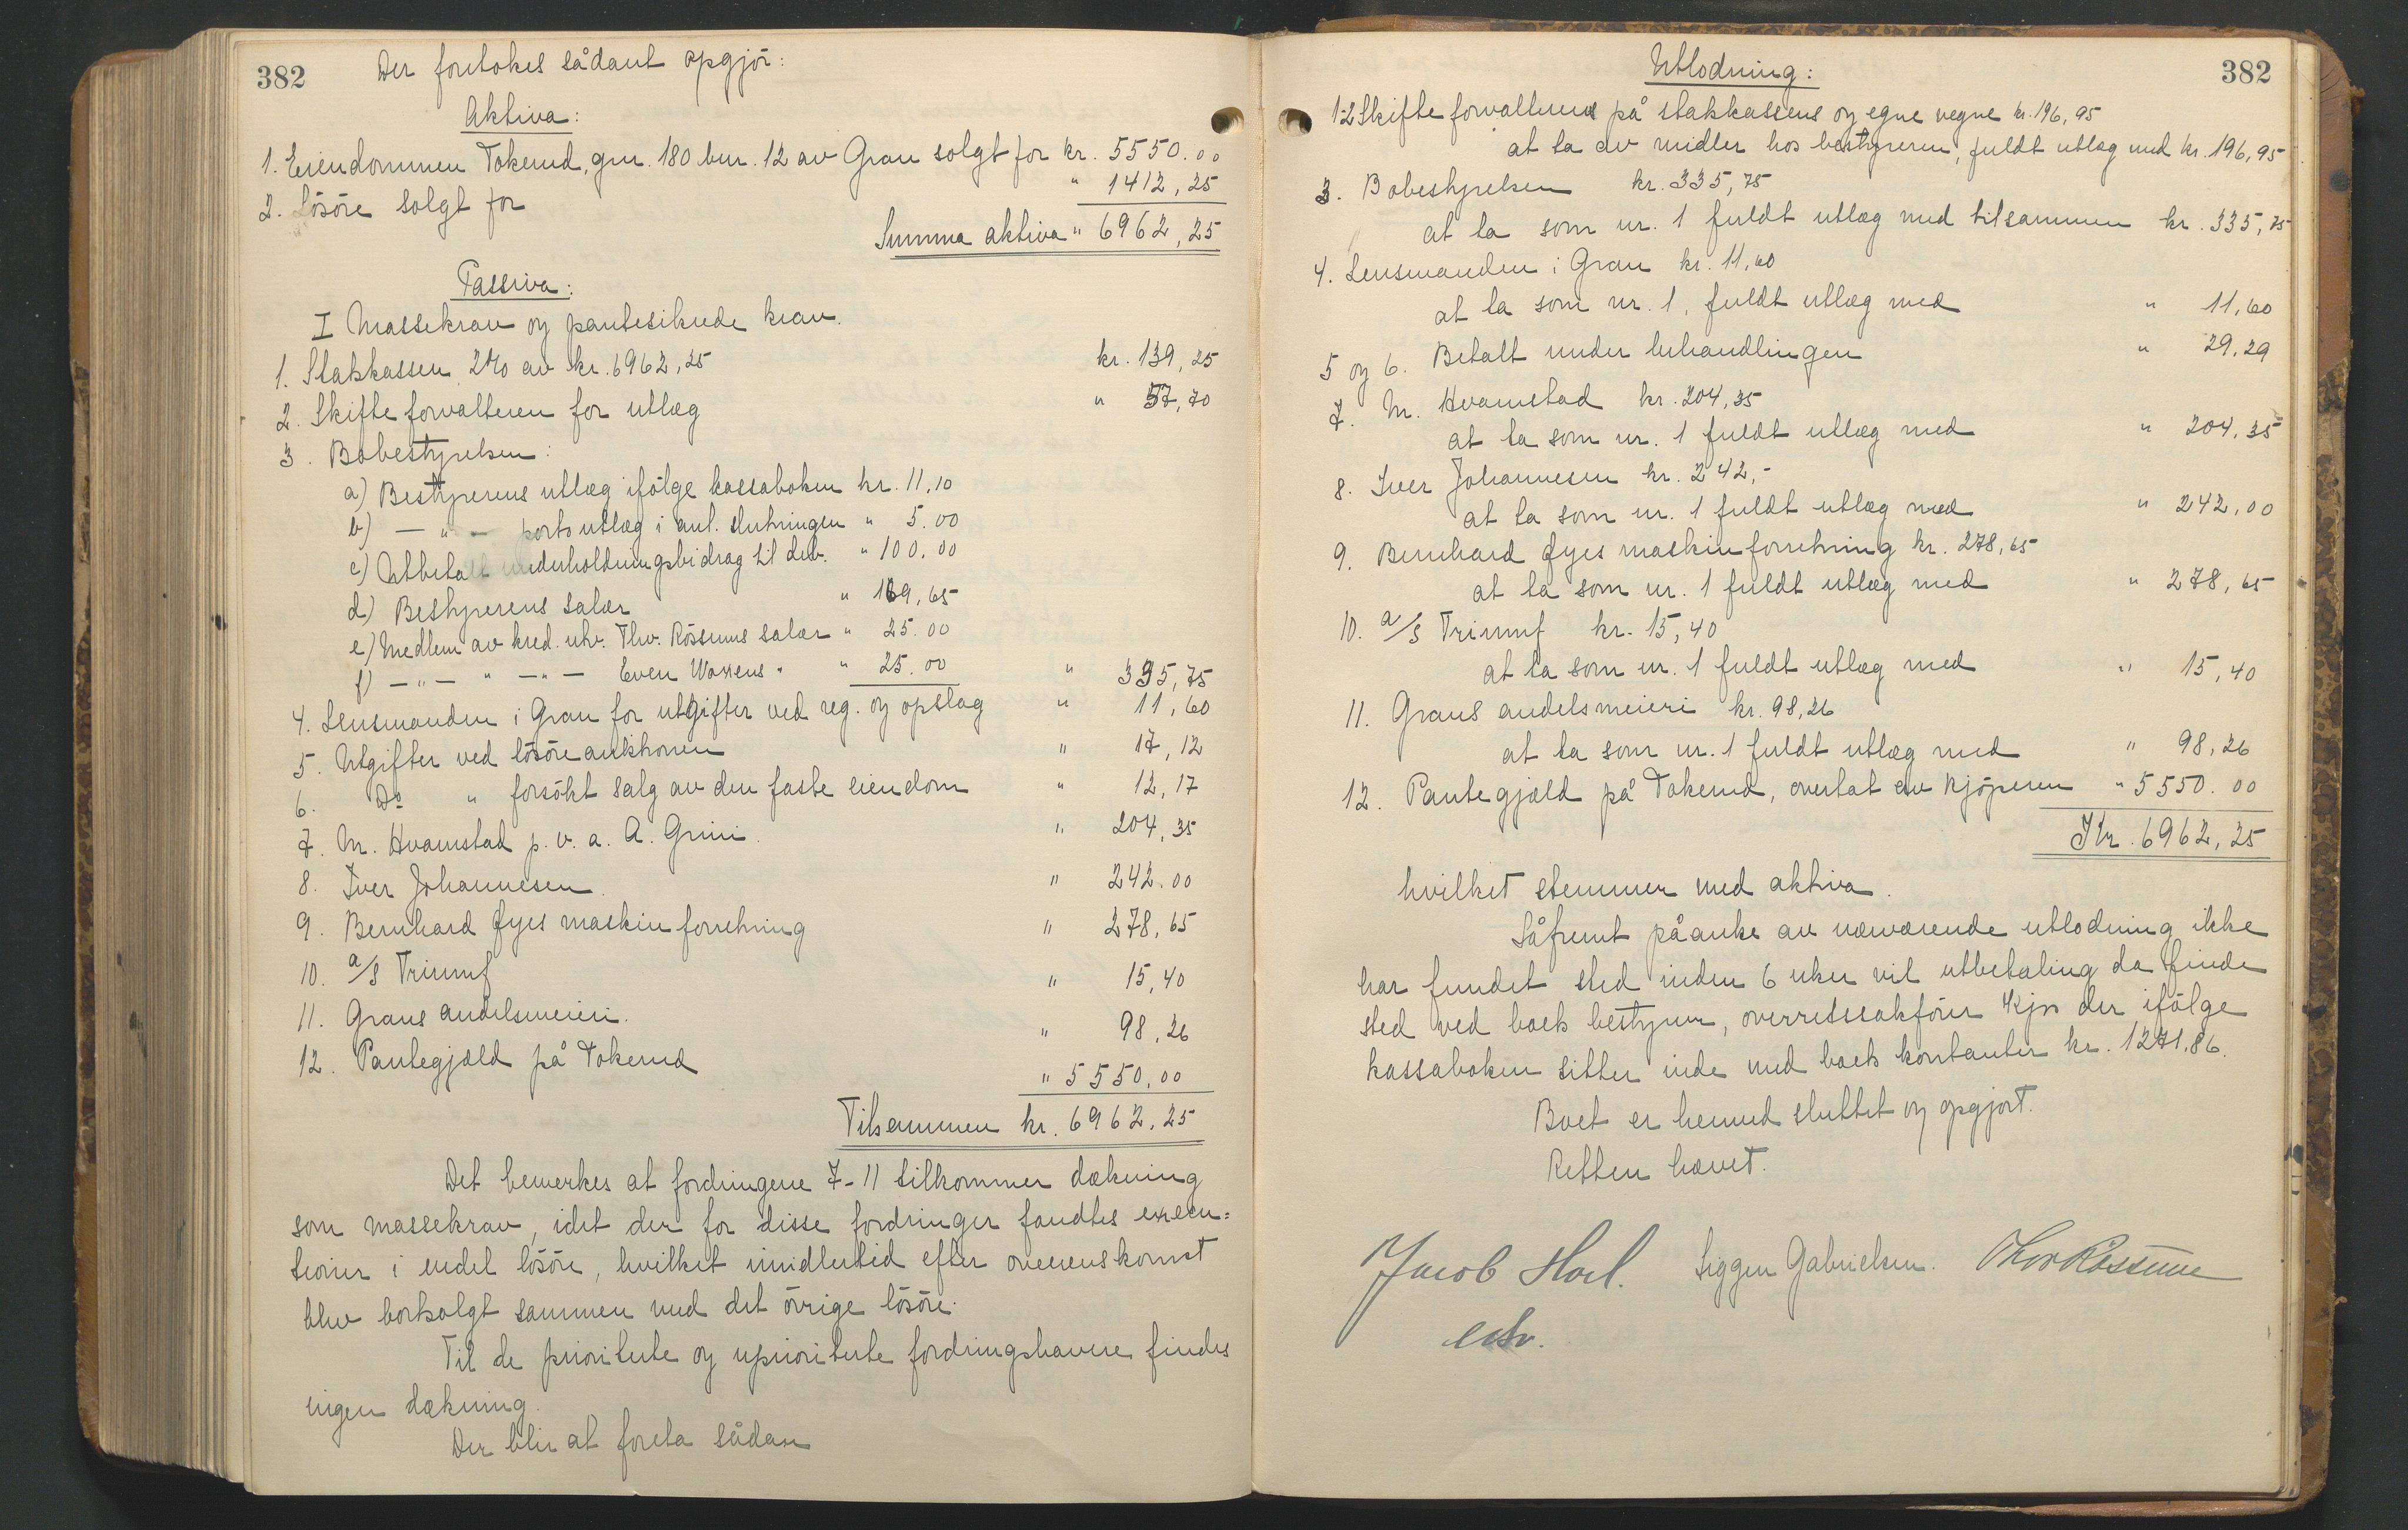 382
Der foretokes sådant opgjör:
Aktiva:
1. Eiendommen Tokerud, gnr. 180 bnr. 12 av Gran solgt for kr. 5550.00
2. Lösöre solgt for " 1412,25
Summa aktiva " 6962,25
Passiva:
I Massekrav og pantesikrede krav.
1. Statskassen 2% av kr. 6962,25 kr. 139,25
2. Skifteforvalteren for utlæg " 57,70
3. Bobestyrelsen:
a) Bestyrerens utlæg ifölge kassaboken kr. 11,10
b) — " — porto utlæg i anl. slutningen " 5.00
c) Utbetalt underholdningsbidrag til deb. " 100.00
d) Bestyrerens salær " 169,65
e) Medlem av kred. utv. Thv. Rössums salær " 25.00
f) — " — " — " — Even Warrens " " 25.00 " 335,75
4. Lensmanden i Gran for utgifter ved reg. og opslag " 11,60
5. Utgifter ved lösöreauktionen " 17,12
6. Do " forsökt salg av den faste eiendom " 12,17
7. M. Hvamstad p. v. a. A. Grini. " 204,35
8. Iver Johannesen. " 242.00
9. Bernhard Øyes maskinforretning " 278,65
10. a/s Triumf " 15,40
11. Grans andelsmeieri. " 98,26
12. Pantegjæld på Tokerud " 5550,00
Tilsammen kr. 6962,25
Det bemerkes at fordringene 7-11 tilkommer dækning
som massekrav, idet der for disse fordringer fandtes execu=
tioner i endel lösöre, hvilket imidlertid efter overenskomst
blev bortsolgt sammen med det övrige lösöre.
Til de prioriterte og uprioriterte fordringshavere findes
ingen dækning.
Der blir at foreta sådan
382
Utlodning:
1-2 Skifteforvalteren på statskassens og egne vegne kr. 196,95
at ta av midler hos bestyreren, fuldt utlæg med kr. 196,95
3. Bobestyrelsen kr. 335,75
at ta som nr. 1 fuldt utlæg med tilsammen kr. 335,75
4. Lensmanden i Gran kr. 11,60
at ta som nr. 1, fuldt utlæg med " 11,60
5 og 6. Betalt under behandlingen " 29,29
7. M. Hvamstad kr. 204,35
at ta som nr. 1 fuldt utlæg med " 204,35
8. Iver Johannesen kr. 242,-
at ta som nr. 1 fuldt utlæg med " 242,00
9. Bernhard Øyes maskinforretning kr. 278,65
at ta som nr. 1 fuldt utlæg med " 278,65
10. a/s Triumf kr. 15,40
at ta som nr. 1 fuldt utlæg med " 15,40
11. Grans andelsmeieri kr. 98,26
at ta som nr. 1 fuldt utlæg med " 98,26
12. Pantegjæld på Tokerud, overtat av kjöperen " 5550.00
Kr. 6962,25
hvilket stemmer med aktiva.
Såfremt påanke av nærværende utlodning ikke
har fundet sted inden 6 uker vil utbetaling da finde
sted ved boets bestyrer, overretssakförer Kjos der ifölge
kassaboken sitter inde med boets kontanter kr. 1271,86.
Boet er hermed sluttet og opgjort.
Retten hævet.
Jacob Hoel. Sigger Gabrielsen. Thv Rössum
cstv.